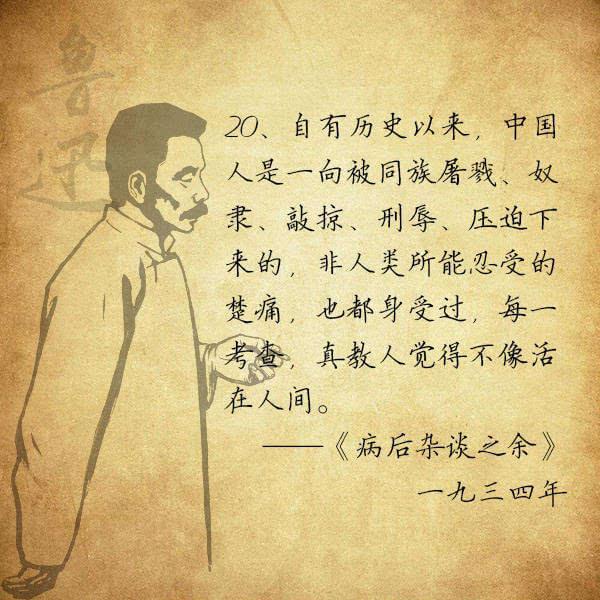 鲁迅
20、自有历史以来，中国
人是一向被同族屠戮、奴
隶、敲掠、刑辱、压迫下
来的，非人类所能忍受的
楚痛，也都身受过，每一
考查，真教人觉得不像活
在人间。
——《病后杂谈之余》
一九三四年